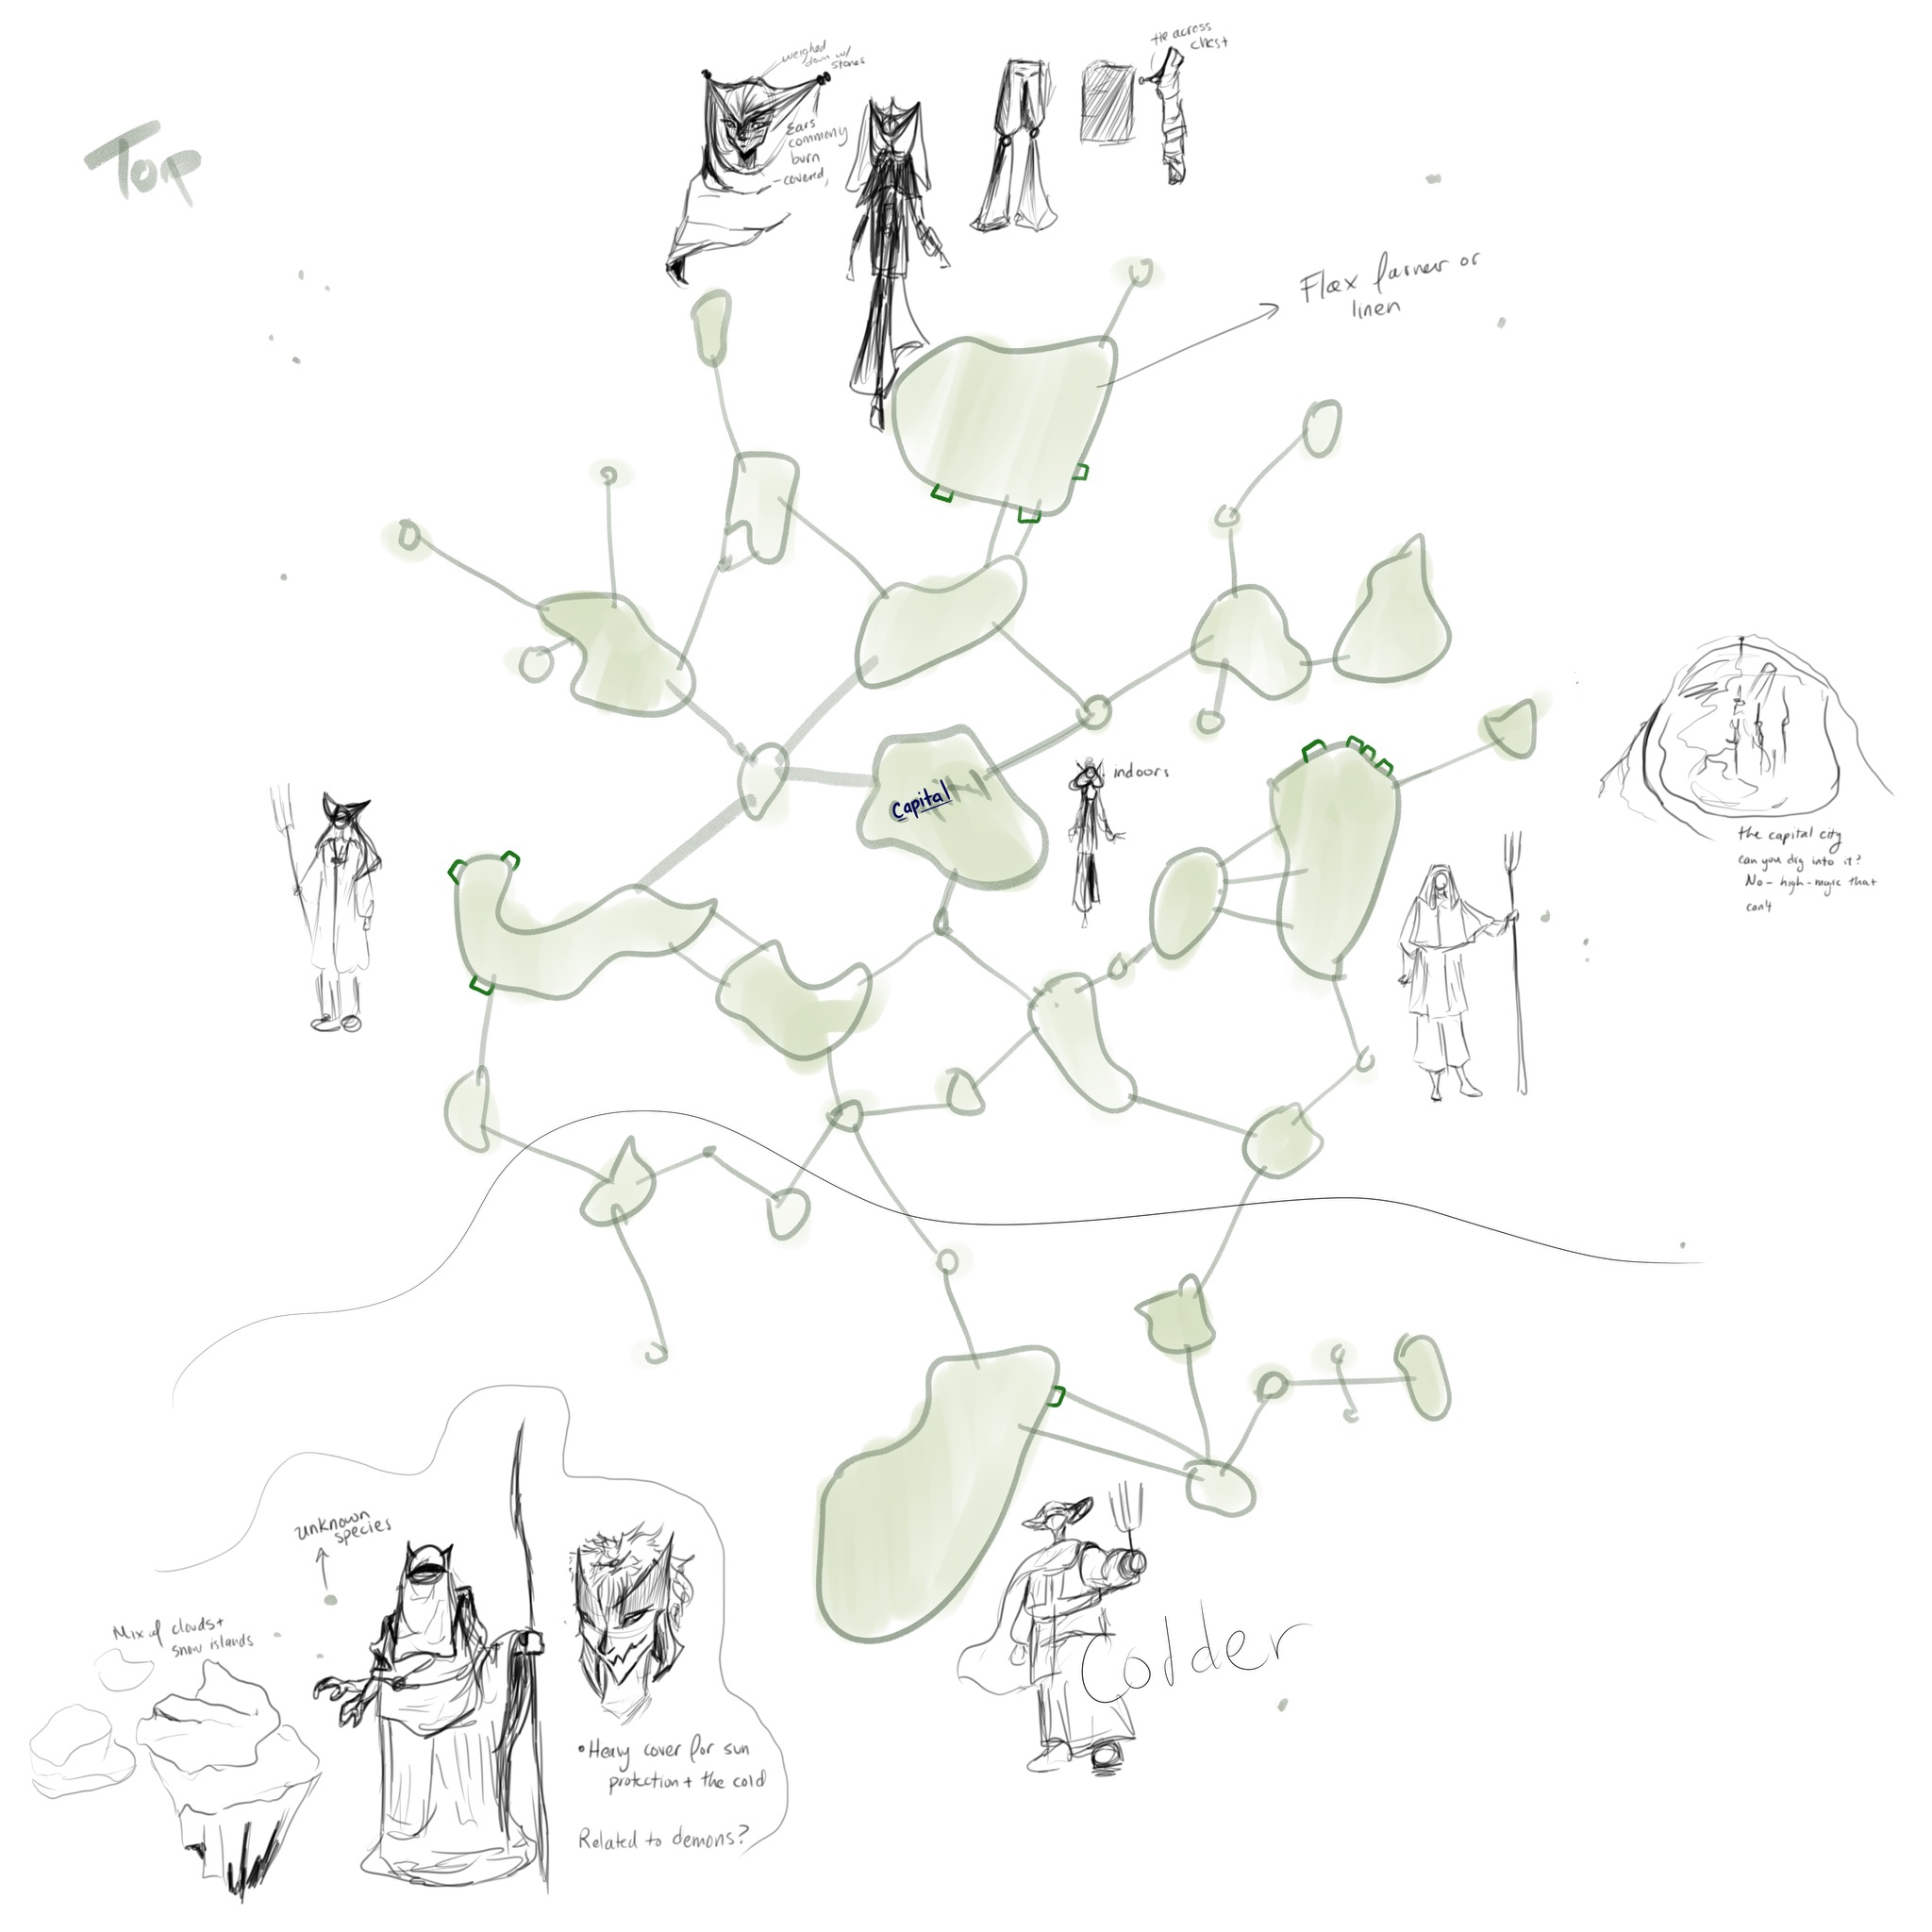 Top
weighed
down w/
stones
tie across
chest
Ears
commony
burn
-covered,
Flax farmer or
linen
Capital
indoors
the capital city
can you dig into it?
No - high-magic that
can't
unknown
species
Mix of clouds +
snow islands
• Heavy cover for sun
protection + the cold
Related to demons?
Colder